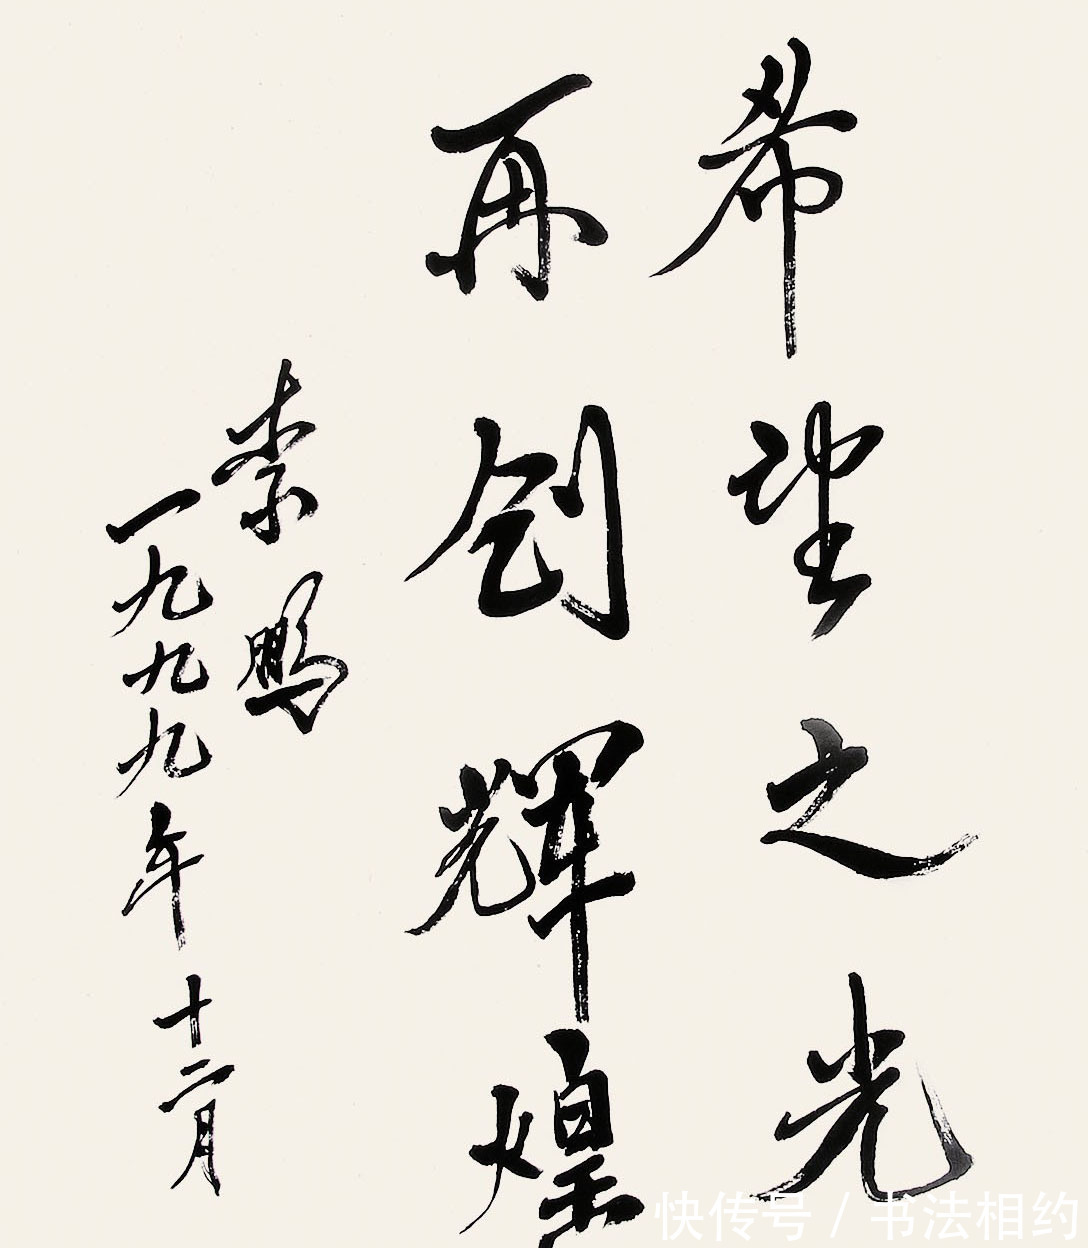 希望之光
再创辉煌
李鹏
一九九九年十二月
快传号 / 书法相约